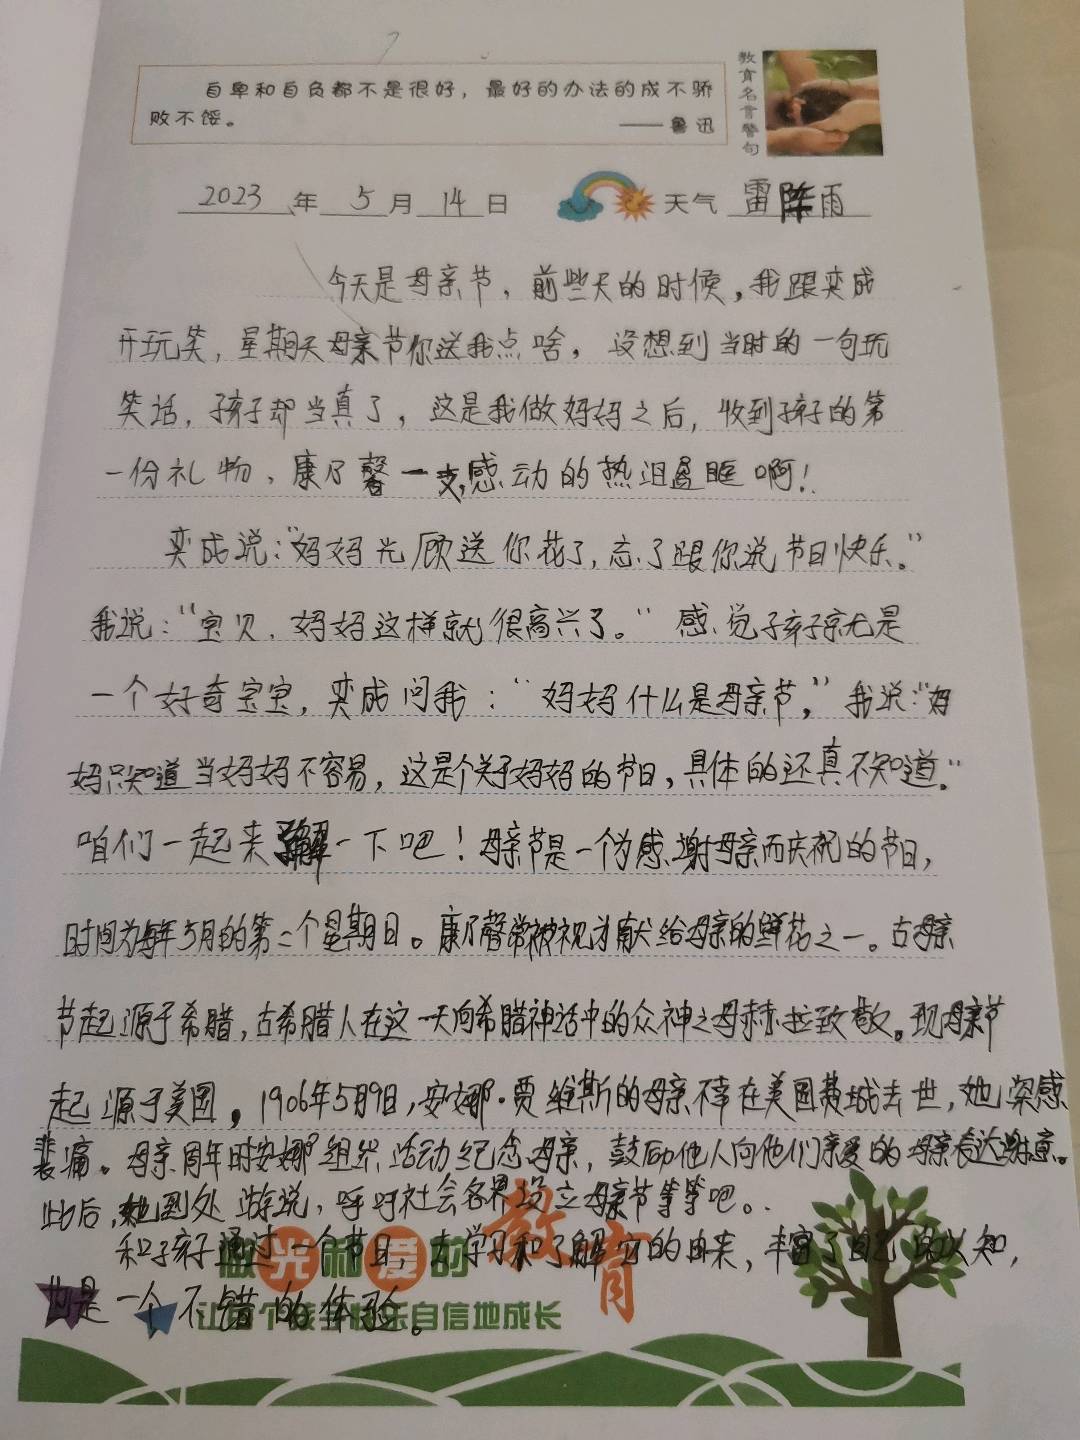 自卑和自负都不是很好，最好的办法的成不骄
败不馁。
——鲁迅
教育名言警句
2023年5月14日 天气 雷阵雨
今天是母亲节，前些天的时候，我跟奕成
开玩笑，星期天母亲节你送我点啥，没想到当时的一句玩
笑话，孩子却当真了，这是我做妈妈之后，收到孩子的第
一份礼物，康乃馨一支，感动的热泪盈眶啊！
奕成说：“妈妈光顾送你花了，忘了跟你说节日快乐。”
我说：“宝贝，妈妈这样就很高兴了。”感觉孩子就是
一个好奇宝宝，奕成问我：“妈妈什么是母亲节，”我说：“妈
妈只知道当妈妈不容易，这是个关于妈妈的节日，具体的还真不知道。”
咱们一起来了解一下吧！母亲节是一个为感谢母亲而庆祝的节日，
时间为每年5月的第二个星期日。康乃馨常被视为献给母亲的鲜花之一。古母亲
节起源于希腊，古希腊人在这一天向希腊神话中的众神之母赫拉致敬。现母亲节
起源于美国，1906年5月9日，安娜·贾维斯的母亲不幸在美国费城去世，她深感
悲痛。母亲周年时安娜组织活动纪念母亲，鼓励他人向他们亲爱的母亲表达谢意。
此后，她到处游说，呼吁社会各界设立母亲节等等吧。
和孩子通过一个节日，去学习和了解它的由来，丰富了自己的认知，
也是一个不错的体验。
做光和爱的教育
让每个孩子快乐自信地成长